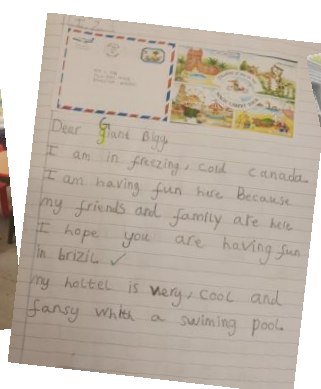 Dear Giant Bigg,
I am in freezing, cold canada.
I am having fun here Because
my friends and family are here
I hope you are having fun
in brizil
my holtel is very, cool and
fansy whith a swiming pool.